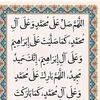 اللَّهُمَّ صَلِّ عَلَى مُحَمَّدٍ وَعَلَى آلِ
مُحَمَّدٍ، كَمَا صَلَّيْتَ عَلَى إِبْرَاهِيمَ
وَعَلَى آلِ إِبْرَاهِيمَ، إِنَّكَ حَمِيدٌ
مَجِيدٌ، اللَّهُمَّ بَارِكْ عَلَى مُحَمَّدٍ
وَعَلَى آلِ مُحَمَّدٍ، كَمَا بَارَكْتَ